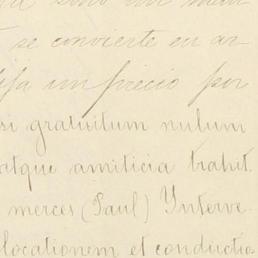 se convierte en ar
fija un precio por
si gratuitum nulum
atque amiticia trahit.
merces (Paul) Interve
locationem et conductio